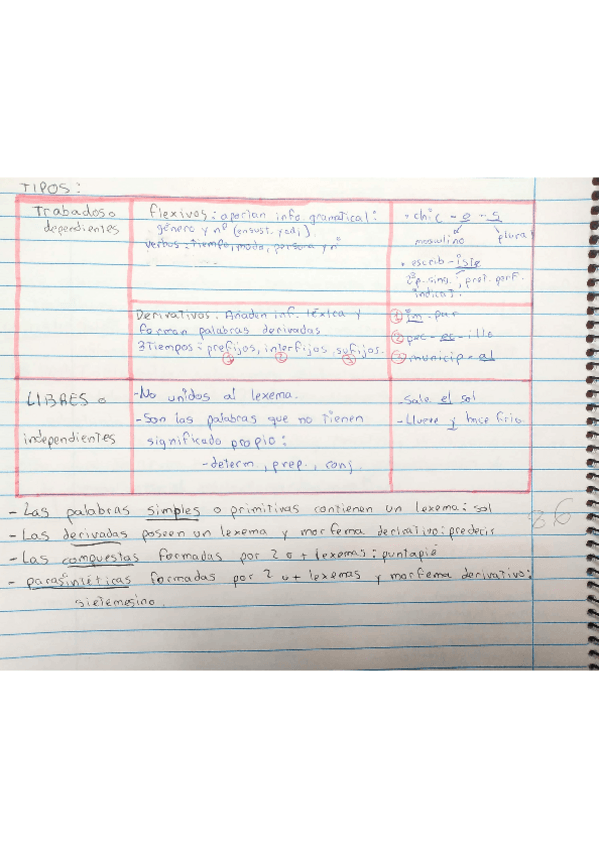 TIPOS:
Trabados o
dependientes
flexivos: aportan info gramatical:
género y nº (en sust. y adj)
verbos: tiempo, modo, persona y nº
• chic - o - s
masculino plural
• escrib - iste
2ªp. sing., pret. perf.
indicat.
Derivativos. Añaden inf. léxica y
forman palabras derivadas.
3 Tiempos: prefijos, interfijos, sufijos.
1 2 3
1 im-par
2 pec-ec-illo
3 municip-al
LIBRES o
independientes
-No unidos al lexema.
-Son las palabras que no tienen
significado propio:
-determ, prep., conj.
-Sale el sol
-Llueve y hace frío.
- Las palabras simples o primitivas contienen un lexema: sol
- Las derivadas poseen un lexema y morfema derivativo: predecir
- Las compuestas formadas por 2 o + lexemas: puntapié
- parasintéticas formadas por 2 o + lexemas y morfema derivativo:
sietemesino.
86